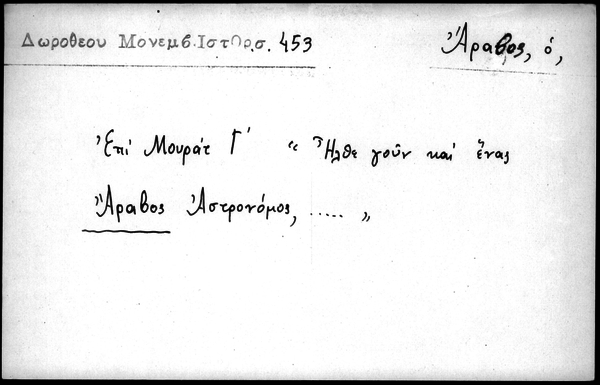 Δωροθεου Μονεμβ.Ιστορ.σ. 453
Ἄραβος, ὁ,
Ἐπί Μουράτ Γ΄ “ Ἦλθε γοῦν καί ἕνας
Ἄραβος Ἀστρονόμος, ..... ”